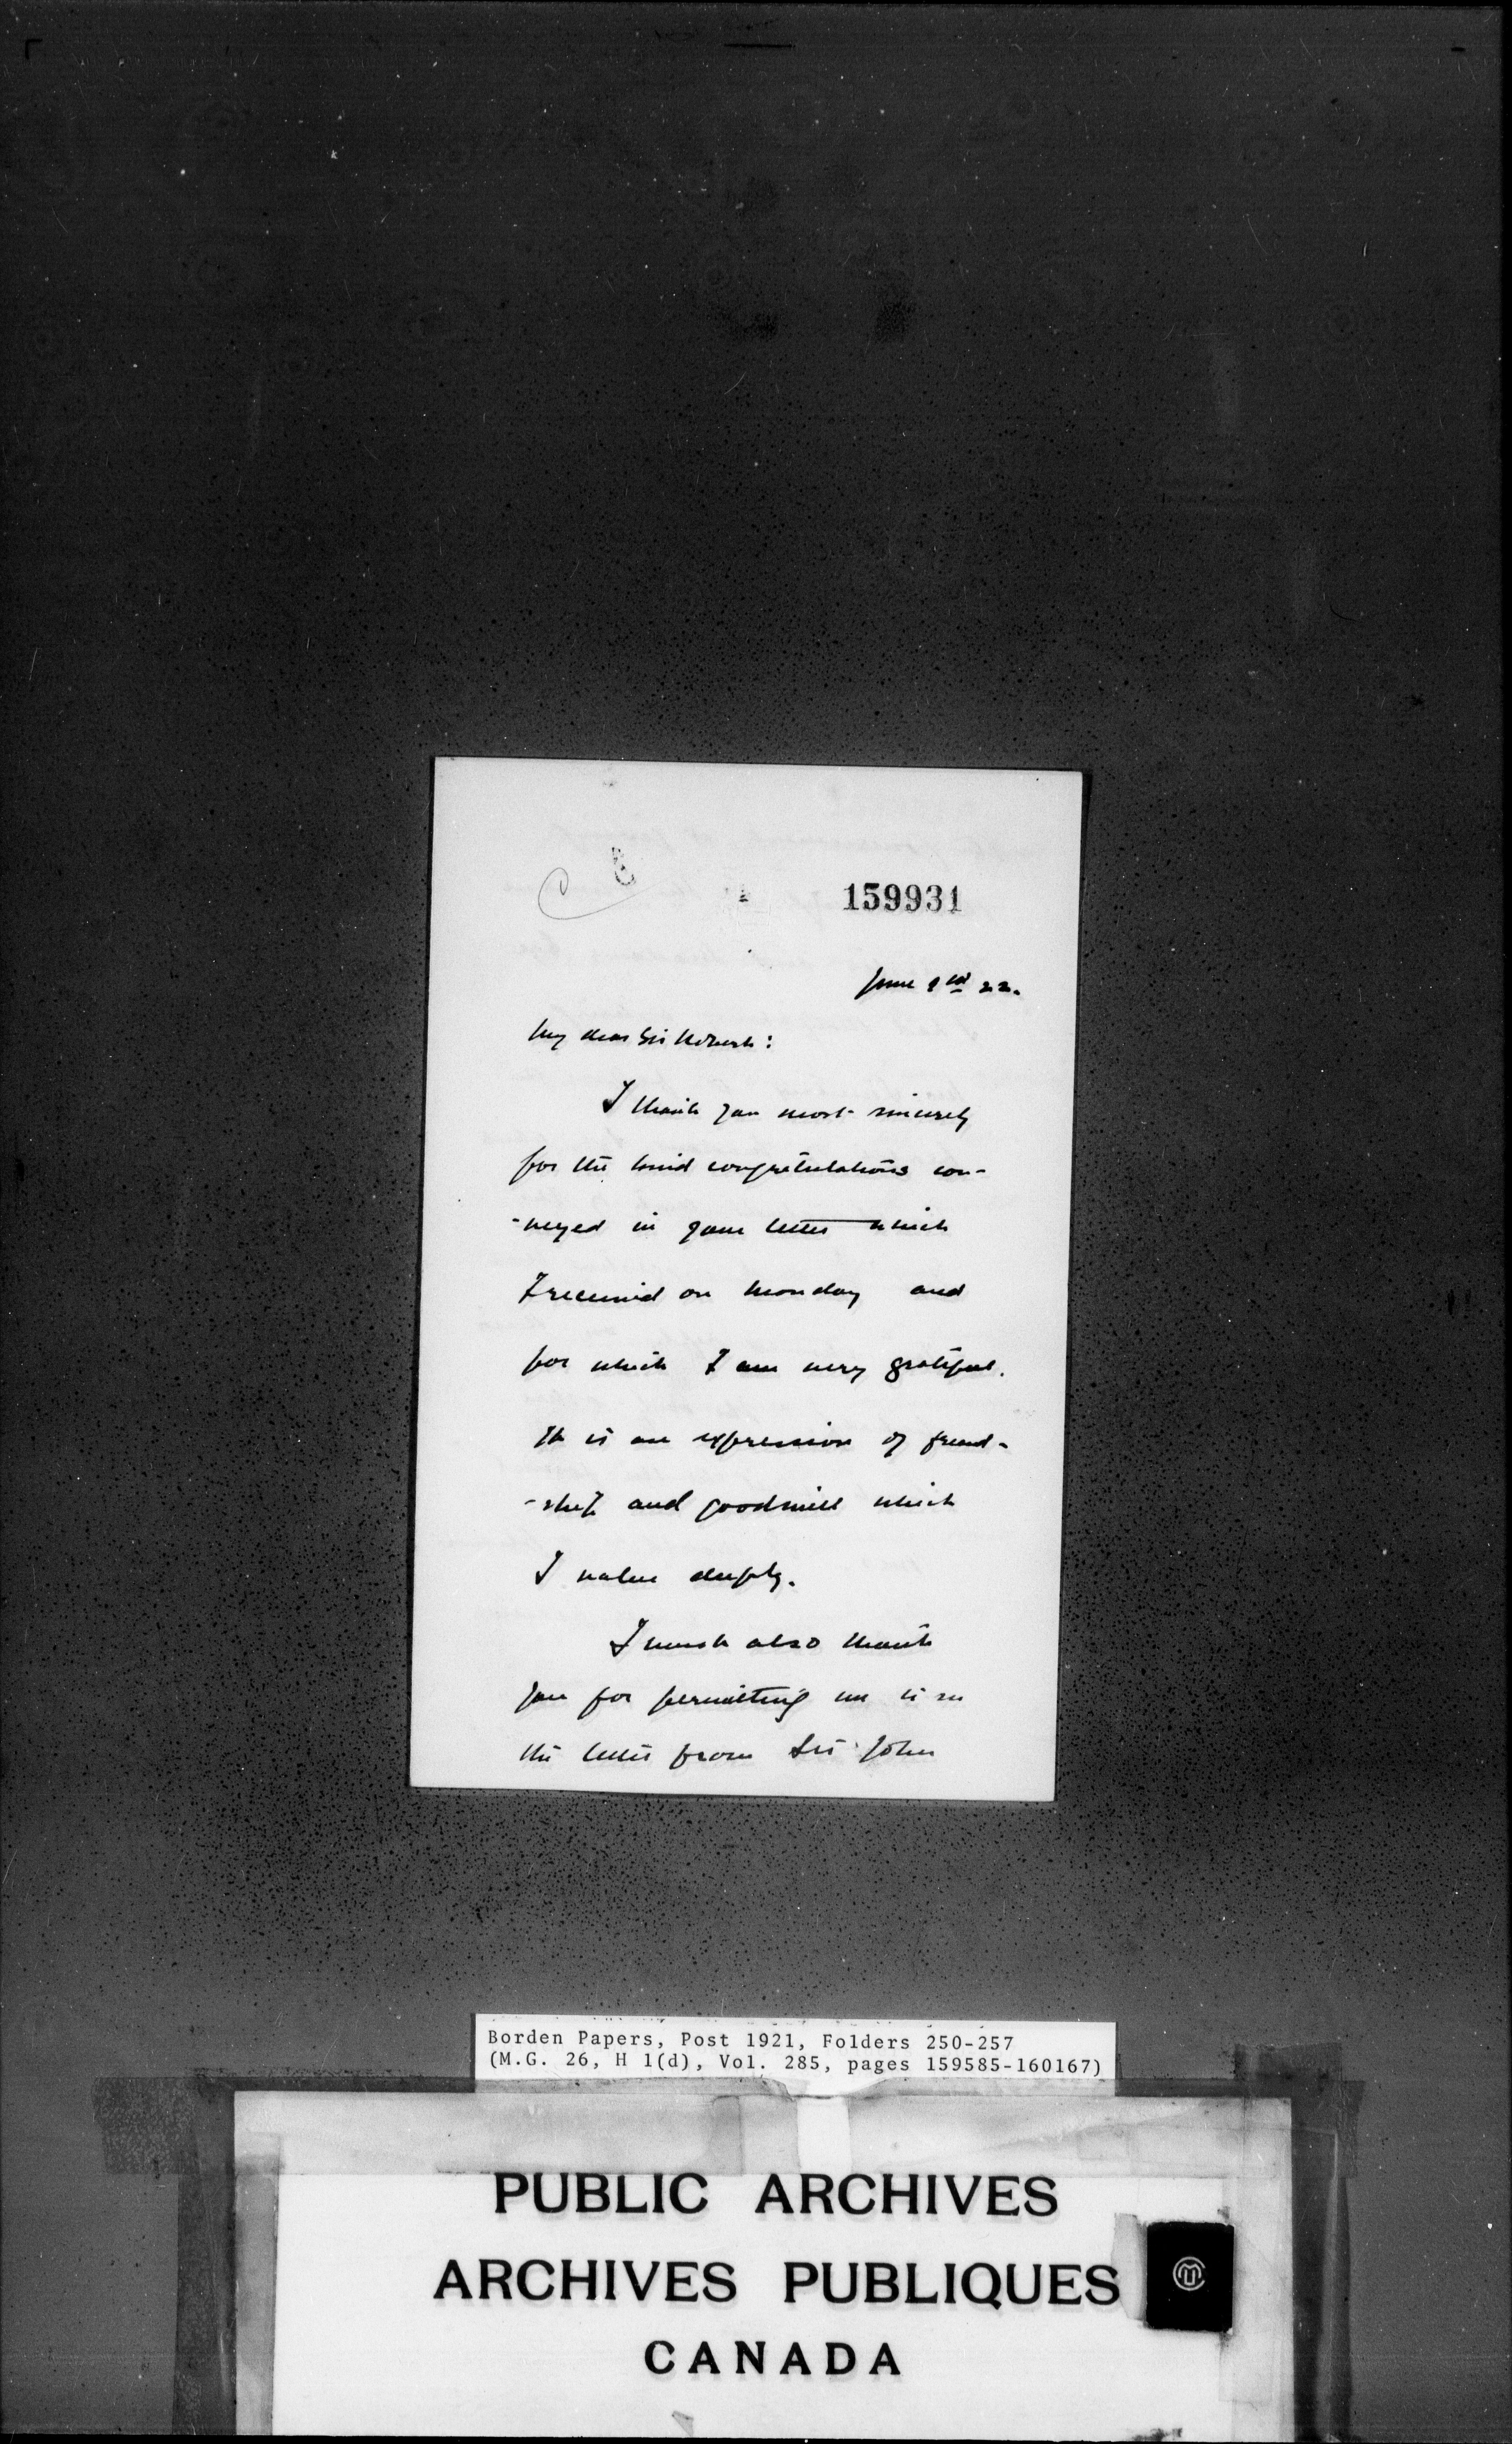 159931
June 1st 22.
My dear Sir Robert:
I thank you most sincerely
for the kind congratulations con-
-veyed in your letter which
I received on Monday and
for which I am very grateful.
It is an expression of friend-
-ship and goodwill which
I value deeply.
I must also thank
you for permitting me to see
the letter from Sir John
Borden Papers, Post 1921, Folders 250-257
(M.G. 26, H 1(d), Vol. 285, pages 159585-160167)
PUBLIC ARCHIVES
ARCHIVES PUBLIQUES
CANADA